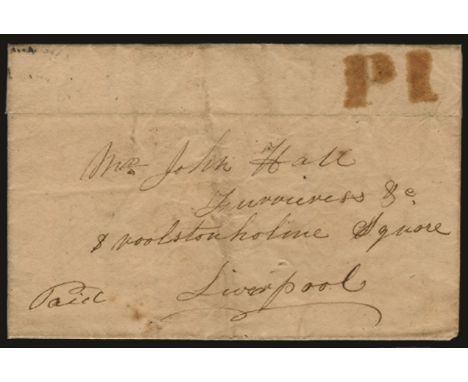 P1
Mr. John Hall
Furrieress &c
8 Woolstonholme Square
Liverpool
Paid